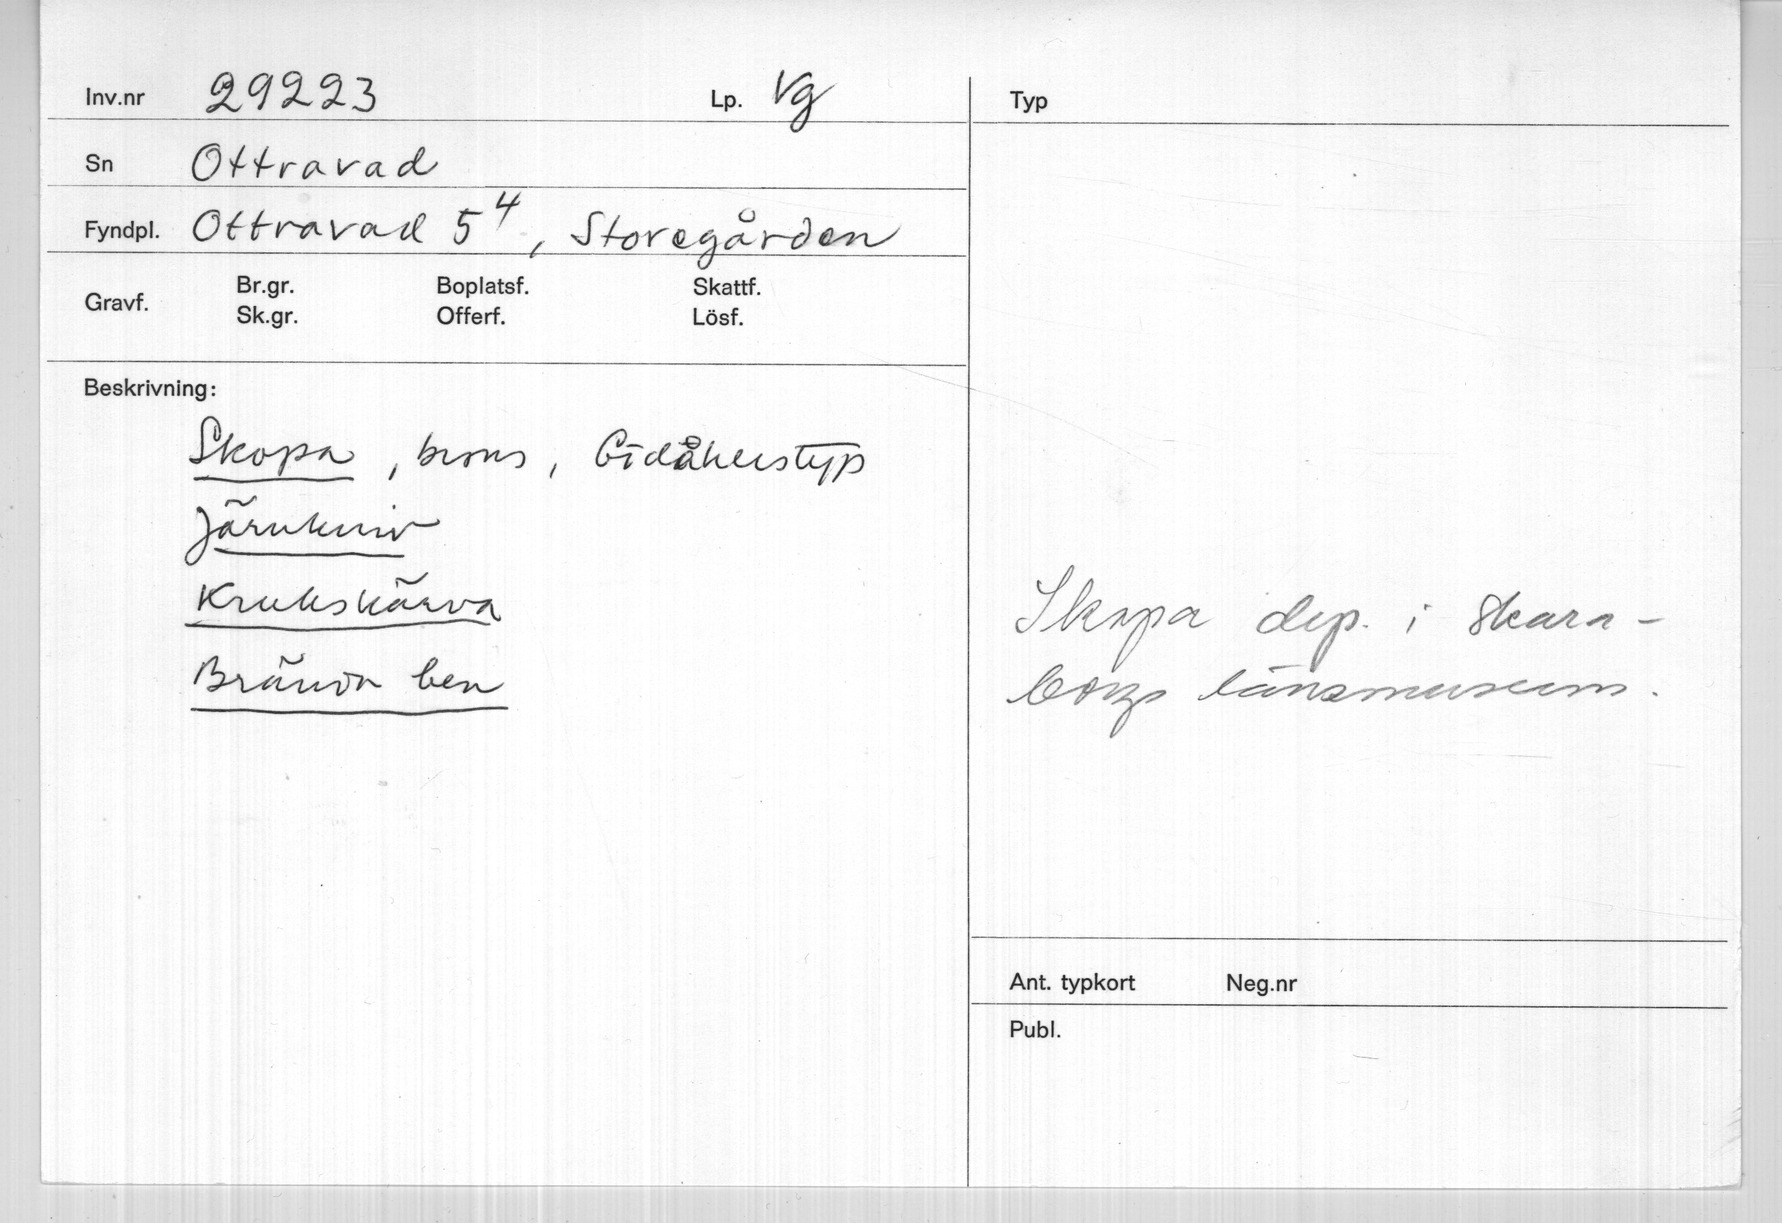 Inv.nr 29223 Lp. Vg
Sn Ottravad
Fyndpl. Ottravad 5⁴, Storegården
Gravf. Br.gr. Boplatsf. Skattf.
Sk.gr. Offerf. Lösf.
Beskrivning:
Skopa, brons,
Järnkniv
Krukskärva
Brända ben
Typ
Skopa dep. i Skara-
borgs länsmuseum.
Ant. typkort Neg.nr
Publ.